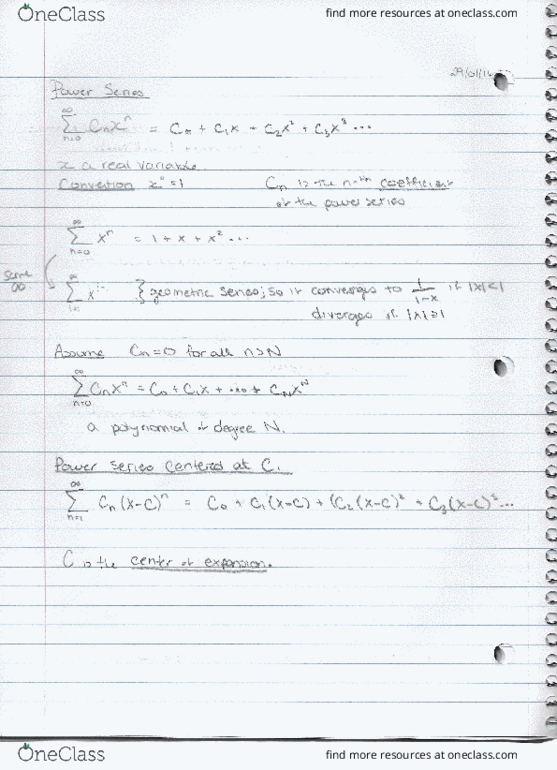 OneClass find more resources at oneclass.com
Power Series
∞
∑ Cₙxⁿ = C₀ + C₁x + C₂x² + C₃x³ ...
n=0
x a real variable
Convention x⁰ = 1 Cₙ is the n-th coefficient
of the power series
∞
∑ xⁿ = 1 + x + x² ...
n=0
same ∞
∑ x } geometric series; so it converges to 1/(1-x) if |x|<1
diverges if |x|≥1
Assume Cₙ=0 for all n>N
∞
∑ Cₙxⁿ = C₀ + C₁x + ... + C_N x^N
n=0
a polynomial of degree N.
Power series centered at C.
∞
∑ Cₙ(x-c)ⁿ = C₀ + C₁(x-c) + (C₂(x-c)² + C₃(x-c)³ ...
n=1
C is the center of expansion.
OneClass find more resources at oneclass.com